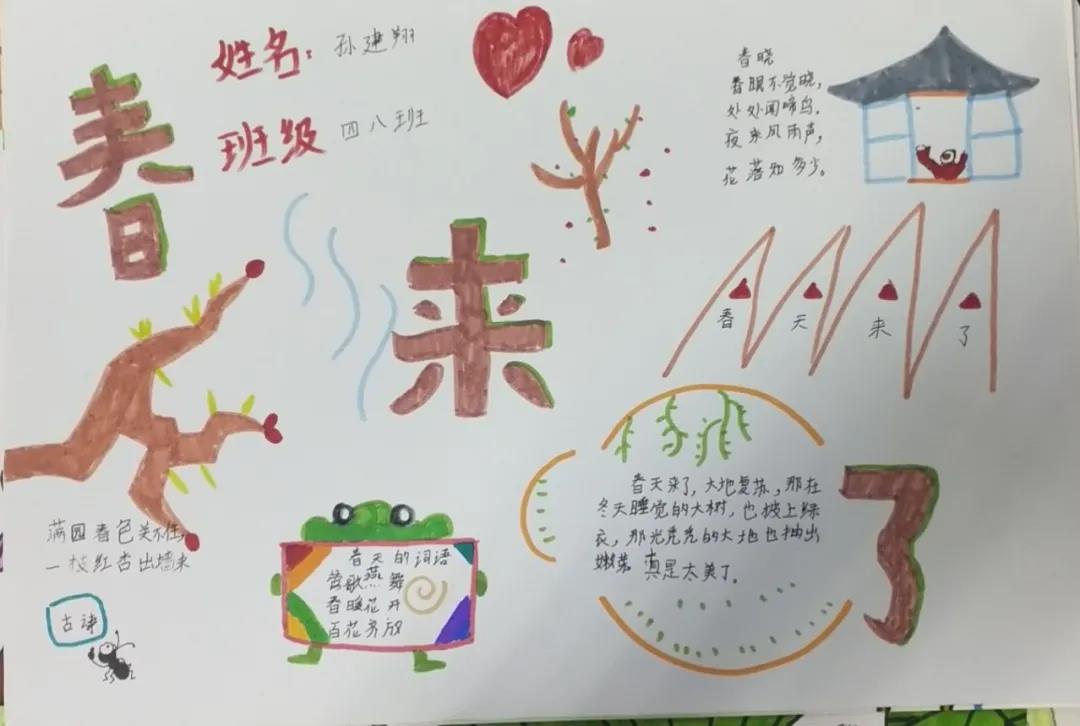 春
来
了
姓名：孙建翔
班级 四八班
春晓
春眠不觉晓，
处处闻啼鸟。
夜来风雨声，
花落知多少。
春天来了
满园春色关不住，
一枝红杏出墙来
古诗
春天的词语
莺歌燕舞
春暖花开
百花齐放
春天来了，大地复苏，那在
冬天睡觉的大树，也披上绿
衣，那光秃秃的大地也抽出
嫩芽 真是太美了。